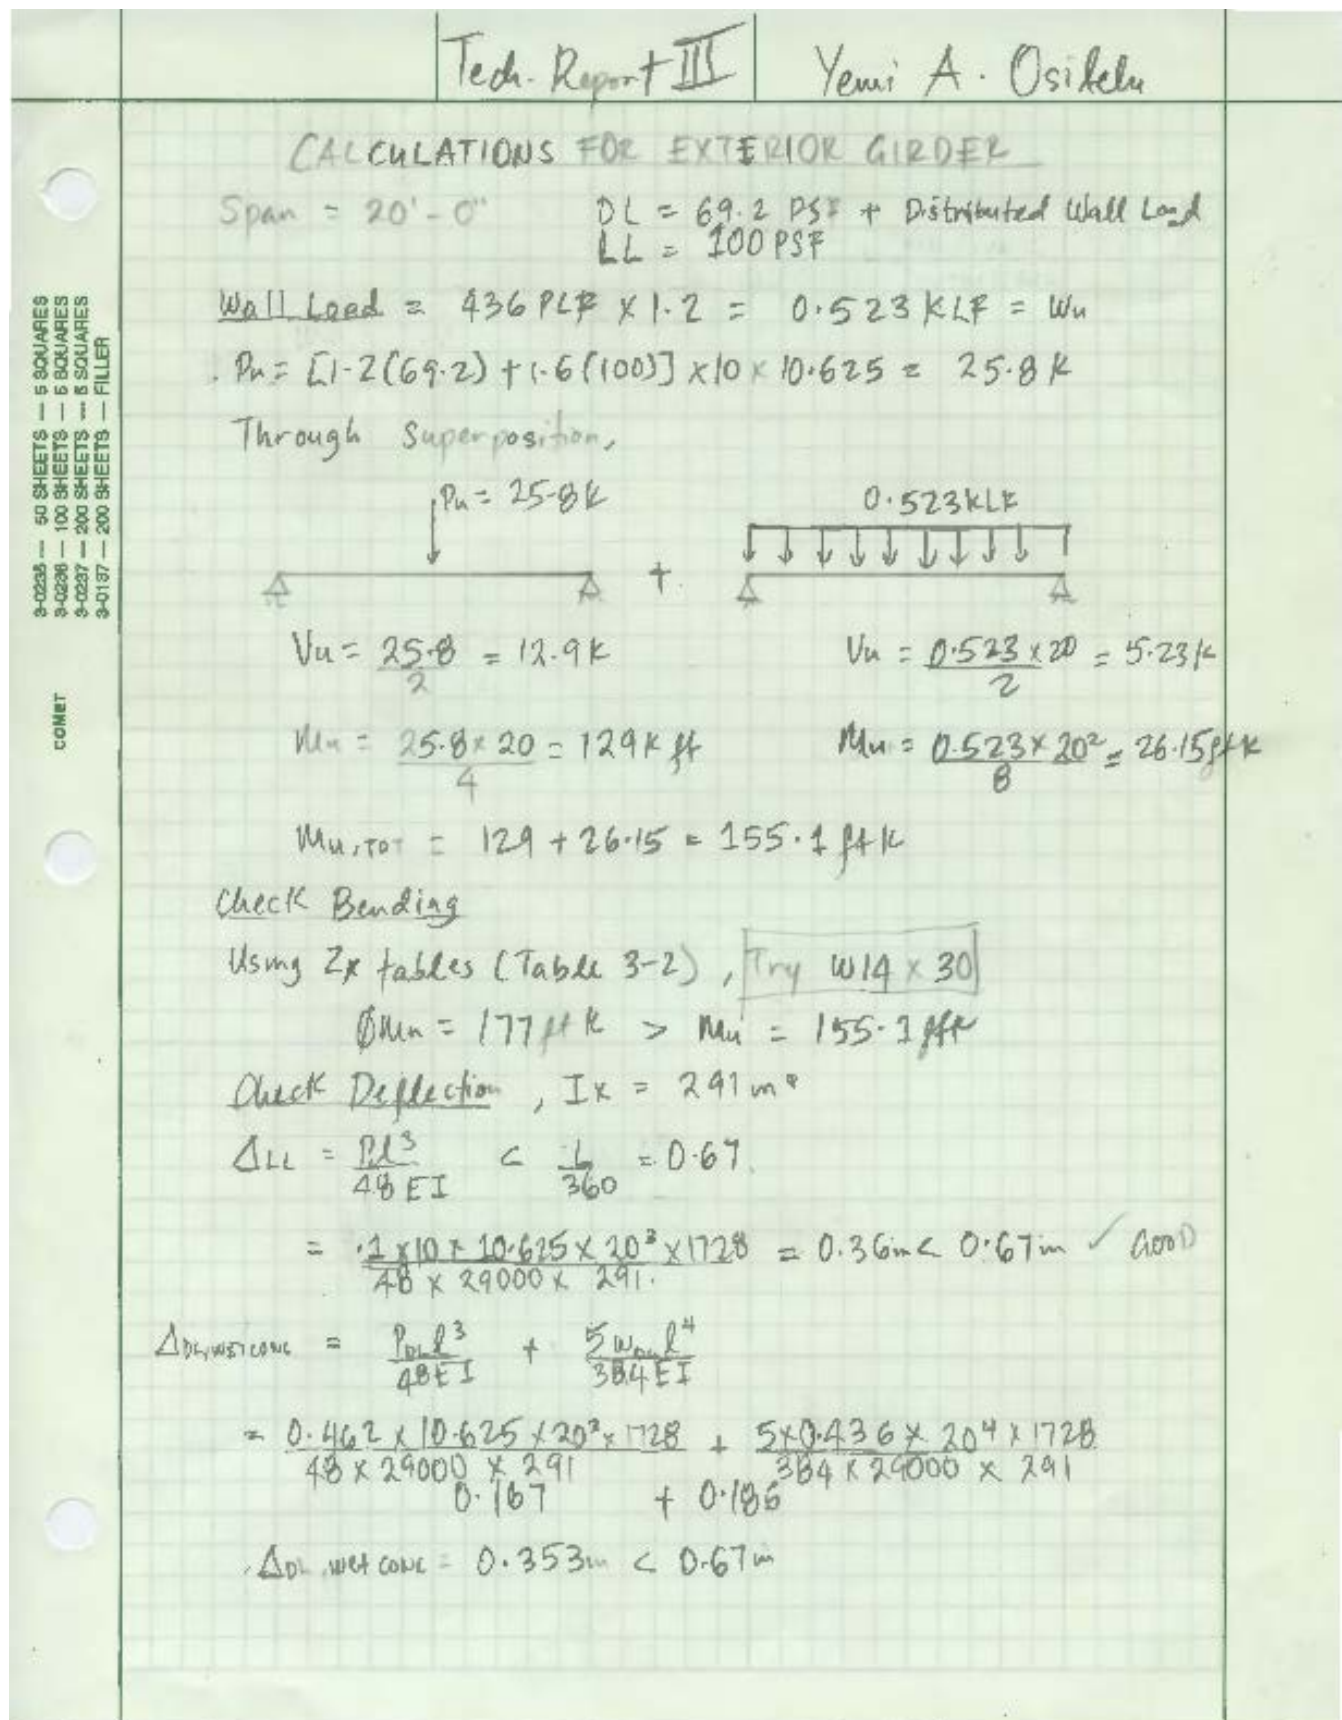 Tech. Report III
Yemi A. Osikelu
CALCULATIONS FOR EXTERIOR GIRDER
Span = 20'-0" DL = 69.2 PSF + Distributed Wall Load
LL = 100 PSF
Wall Load = 436 PLF × 1.2 = 0.523 KLF = Wu
Pu = [1.2(69.2) + 1.6(100)] × 10 × 10.625 = 25.8 K
Through Superposition,
Pu = 25.8 K 0.523 KLF
+
Vu = 25.8/2 = 12.9 K Vu = 0.523 × 20/2 = 5.23 K
Mu = 25.8 × 20/4 = 129 K ft Mu = 0.523 × 20²/8 = 26.15 ft K
Mu,TOT = 129 + 26.15 = 155.1 ft K
Check Bending
Using Zx tables (Table 3-2), Try W14 × 30
ØMn = 177 ft K > Mu = 155.1 ft K
Check Deflection, Ix = 291 in⁴
ΔLL = Pl³/48EI < L/360 = 0.67
= .1 × 10 × 10.625 × 20³ × 1728/48 × 29000 × 291. = 0.36 in < 0.67 in ✓ GOOD
ΔDL, WET CONC = PDL l³/48EI + 5 WDL l⁴/384 EI
= 0.462 × 10.625 × 20³ × 1728/48 × 29000 × 291 + 5×0.436 × 20⁴ × 1728/384 × 29000 × 291
0.167 + 0.186
ΔDL, wet conc = 0.353 in < 0.67 in
3-0235 — 50 SHEETS — 5 SQUARES
3-0236 — 100 SHEETS — 5 SQUARES
3-0237 — 200 SHEETS — 5 SQUARES
3-0137 — 200 SHEETS — FILLER
COMET